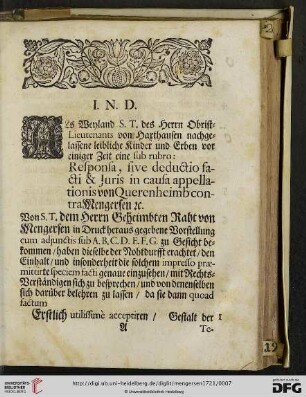 I. N. D.
Als Weyland S. T. des Herrn Obrist-
Lieutenants von Haxthausen nachge-
lassene leibliche Kinder und Erben vor
einiger Zeit eine sub rubro:
Responsa, sive deductio fa-
cti & Juris in causa appella-
tionis von Querenheimb con-
tra Mengersen ꝛc.
Von S. T. dem Herrn Geheimbten Raht von
Mengersen in Druck heraus gegebene Vorstellung
cum adjunctis sub A, B, C, D. E, F, G. zu Gesicht be-
kommen / haben dieselbe der Nohtdurfft erachtet / den
Einhalt / und insonderheit die solchem impresso præ-
mitirte speciem facti genaue einzusehen / mit Rechts-
Verständigen sich zu besprechen / und von denenselben
sich darüber belehren zu lassen / da sie dann quoad
factum
Erstlich utilissimè acceptiren / Gestalt der 1
A Te-
http://digi.ub.uni-heidelberg.de/diglit/mengersen1723/0007
© Universitätsbibliothek Heidelberg
UNIVERSITÄTS-
BIBLIOTHEK
HEIDELBERG
gefördert durch die
DFG